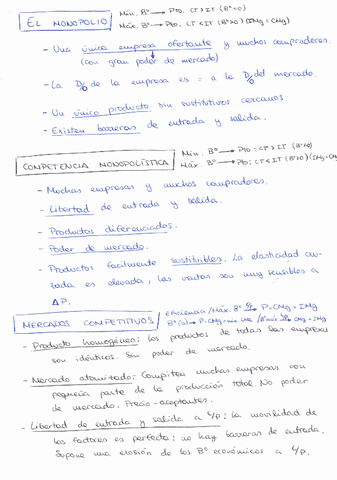 EL MONOPOLIO
Mín. Bº → Pto. CT > IT (Bº<0)
Máx. Bº → Pto. CT < IT (Bº>0) (IMg = CMg)
- Una única empresa ofertante y muchos compradores.
(con gran poder de mercado)
- La Dº de la empresa es = a la Dº del mercado.
- Un único producto sin sustitutivos cercanos.
- Existen barreras de entrada y salida.
COMPETENCIA MONOPOLÍSTICA
Mín. Bº → Pto: CT > IT (Bº<0)
Máx. Bº → Pto: CT < IT (Bº>0) (IMg = CMg
- Muchas empresas y muchos compradores.
- Libertad de entrada y salida.
- Productos diferenciados.
- Poder de mercado.
- Productos facilmente sustituibles. La elasticidad cru-
zada es elevada, las ventas son muy sensibles a
ΔP.
MERCADOS COMPETITIVOS
eficiencia / Máx. Bº P = CMg = IMg
- Producto homogéneo: los productos de todas las empresas
son idénticos. Sin poder de mercado.
- Mercado atomizado: Compiten muchas empresas con
pequeña parte de la producción total. No poder
de mercado. Precio-aceptantes.
- Libertad de entrada y salida a L/p: la movilidad de
los factores es perfecta: no hay barreras de entrada.
Supone una erosión de los Bº económicos a L/p.